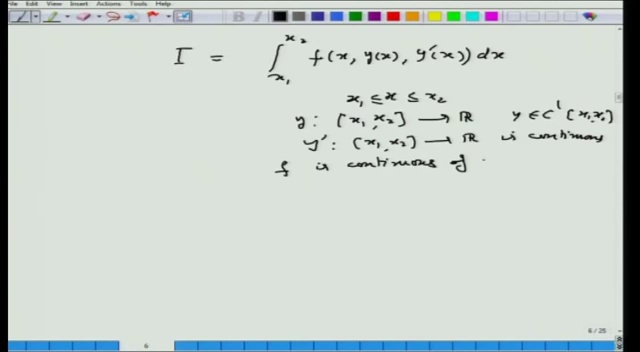 File Edit View Insert Actions Tools Help
I = ∫_{x₁}^{x₂} f(x, y(x), y'(x)) dx
x₁ ≤ x ≤ x₂
y : [x₁, x₂] → ℝ y ∈ C¹ [x₁, x₂]
y' : [x₁, x₂] → ℝ is continuous
f is continuous of
6 / 25
6